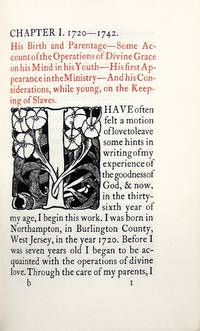 CHAPTER I. 1720—1742.
His Birth and Parentage—Some Ac-
count of the Operations of Divine Grace
on his Mind in his Youth—His first Ap-
pearance in the Ministry—And his Con-
siderations, while young, on the Keep-
ing of Slaves.
I HAVE often
felt a motion
of love to leave
some hints in
writing of my
experience of
the goodness of
God, & now,
in the thirty-
sixth year of
my age, I begin this work. I was born in
Northampton, in Burlington County,
West Jersey, in the year 1720. Before I
was seven years old I began to be ac-
quainted with the operations of divine
love. Through the care of my parents, I
b 1